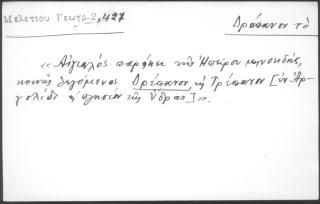 Μελετίου Γεωγρ. 2, 427
Δρέπανον τὸ
«Αἰγιαλὸς παρὰ τῆς Ἠπείρου μηνοειδής,
κοινῶς λεγόμενος Δρέπανον, ἢ Τρέπανον [ἐν Ἀρ-
γολίδι ἢ πλησίον τῆς Ὕδρας]».